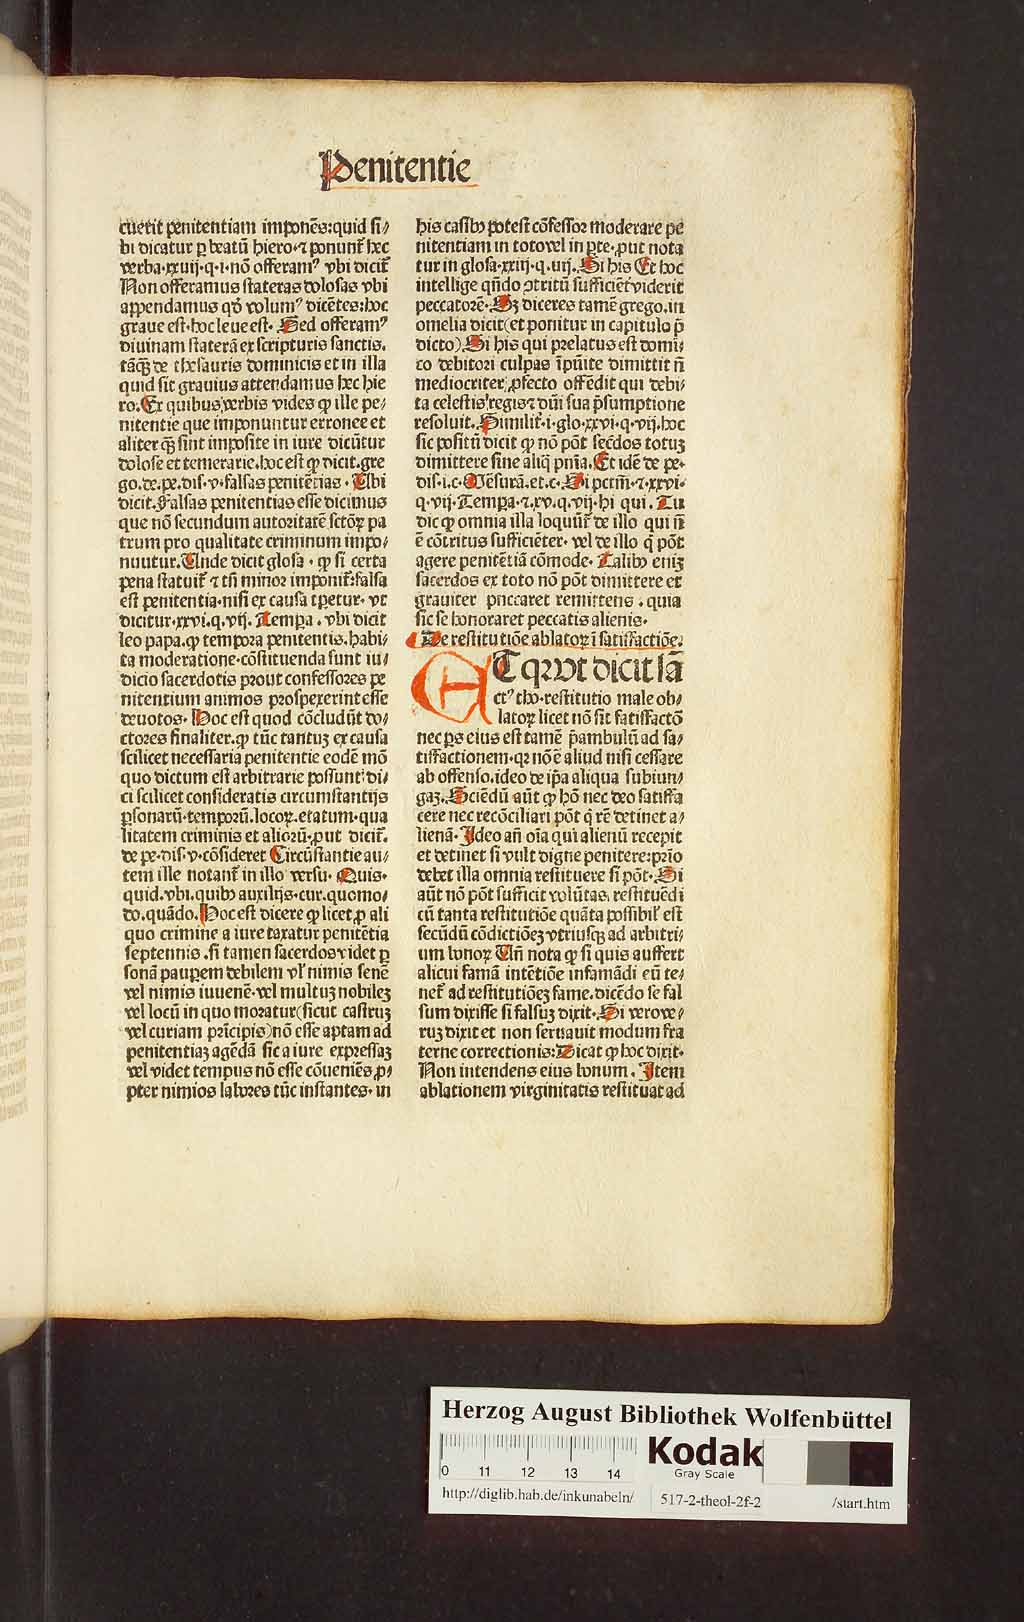 Penitentie
cuerit penitentiam imponēs: quid si⸗
bi dicatur ꝑ beatū hiero·⁊ ponunt᷑ hec
verba·xxvij·q·i·nō offeramꝰ vbi dicit᷑
Non offeramus stateras dolosas vbi
appendamus qd̓ volumꝰ dicētes: hoc
graue est·hoc leue est· Sed offeramꝰ
diuinam staterā ex scripturis sanctis.
tāqꝫ de thesauris dominicis et in illa
quid sit grauius attendamus hec hie
ro. Ex quibus verbis vides ꝙ ille pe⸗
nitentie que imponuntur erronee et
aliter qꝫ sint imposite in iure dicūtur
dolose et temerarie. hoc est ꝙ dicit. gre
go. de. pe. dis· v· falsas penitētias · Ubi
dicit. Falsas penitentias esse dicimus
que nō secundum autoritatē sctōꝝ pa
trum pro qualitate criminum impo⸗
nuutur. Unde dicit glosa · ꝙ si certa
pena statuit᷑ ⁊ tn̄ minor imponit᷑: falsa
est penitentia·nisi ex causa tꝑetur· vt
dicitur·xxvi.q.vij. Temꝑa . vbi dicit
leo papa. ꝙ tempora penitentis. habi⸗
ta moderatione·cōstituenda sunt iu⸗
dicio sacerdotis prout confessores pe
nitentium animos prospexerint esse
deuotos· Hoc est quod cōcludūt do⸗
ctores finaliter. ꝙ tūc tantuꝫ ex causa
scilicet necessaria penitentie eodē mō
quo dictum est arbitrarie possunt di⸗
ci scilicet consideratis circumstantijs
ꝑsonarū·temporū. locoꝝ. etatum·qua
litatem criminis et aliorū. ꝓut dicit᷑.
de pe· dis· v·cōsideret Circūstantie au⸗
tem ille notant᷑ in illo versu· Quis·
quid. vbi. quibꝰ auxilijs·cur. quomo⸗
do. quādo. Hoc est dicere ꝙ licet ꝓ ali
quo crimine a iure taxatur penitētia
septennis . si tamen sacerdos videt ꝑ
sonā pauꝑem debilem vl̓ nimis senē
vel nimis iuuenē· vel multuꝫ nobileꝫ
vel locū in quo moratur (sicut castruꝫ
vel curiam prīcipis) nō esse aptam ad
penitentiaꝫ agēdā sic a iure expressaꝫ
vel videt tempus nō esse cōueniēs ꝓ⸗
pter nimios labores tūc instantes· in
his casibꝰ potest cōfessor moderare pe
nitentiam in toto vel in ꝑte·ꝓut nota
tur in glosa·xxiij·q.iiij. Si his Et hoc
intellige qn̄do ↄtritū sufficiēt viderit
peccatorē· Sꝫ diceres tamē grego. in
omelia dicit (et ponitur in capitulo p̄
dicto) Si his qui prelatus est domi⸗
co debitori culpas īpūite dimittit n̄
mediocriter ꝓfecto offēdit qui debi⸗
ta celestis regis ⁊ dn̄i sua p̄sumptione
resoluit. Similit᷑·i·glo·xxvi·q·vij. hoc
sic positū dicit ꝙ nō pōt secēdos totuꝫ
dimittere sine aliq̄ pn̄ia. Et idē de pe·
dis·i.c·Mēsurā.et.c· Si pctm̄·⁊·xxvi·
q·vij·Temꝑa·⁊.xv.q.vij·hi qui . Tu
dic ꝙ omnia illa loquūt᷑ de illo qui n̄
ē cōtritus sufficiēter· vel de illo q̄ pōt
agere penitētiā cōmode· Talibꝰ eniꝫ
sacerdos ex toto nō pōt dimittere et
grauiter pnccaret remittens . quia
sic se honoraret peccatis alienis·
De restitutiōe ablatoꝝ ī satisfactiōe.
ET qꝛ vt dicit sā
ctꝰ tho·restitutio male ob⸗
latoꝝ licet nō sit satisfactō
nec ꝑs eius est tamē p̄ambulū ad sa⸗
tisfactionem·qꝛ nō ē aliud nisi cessare
ab offenso. ideo de ip̄a aliqua subiun⸗
gaꝫ. Sciēdū aūt ꝙ hō nec deo satisfa
cere nec recōciliari pōt q̄ rē detinet a⸗
lienā· Ideo añ oīa qui alienū recepit
et detinet si vult digne penitere: pr̄io
debet illa omnia restituere si pōt· Si
aūt nō pōt sufficit volūtas. restituēdi
cū tanta restitutiōe quāta possibil̓ est
secūdū cōdictiōeꝫ vtriusqꝫ ad arbitri⸗
um bonoꝝ Vn̄ nota ꝙ si quis auffert
alicui famā intētiōe infamādi eū te⸗
net᷑ ad restitutiōeꝫ fame. dicēdo se fal
sum dixisse si falsuꝫ dixit. Si vero ve⸗
ruꝫ dixit et non seruauit modum fra
terne correctionis: Dicat ꝙ hoc dixit·
Non intendens eius bonum. Item
ablationem virginitatis restituat ad
Herzog August Bibliothek Wolfenbüttel
0 11 12 13 14
Kodak
Gray Scale
http://diglib.hab.de/inkunabeln/
517-2-theol-2f-2
/start.htm